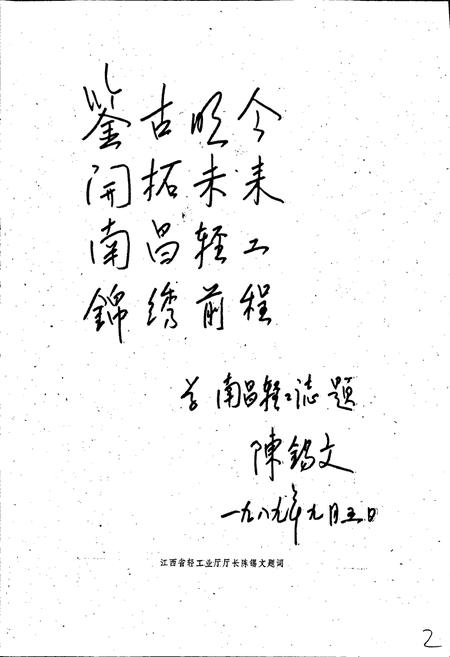 鉴古明今
开拓未来
南昌轻工
錦绣前程
为南昌轻工誌题
陳锡文
一九八九年九月五日
江西省轻工业厅厅长陈锡文题词
2